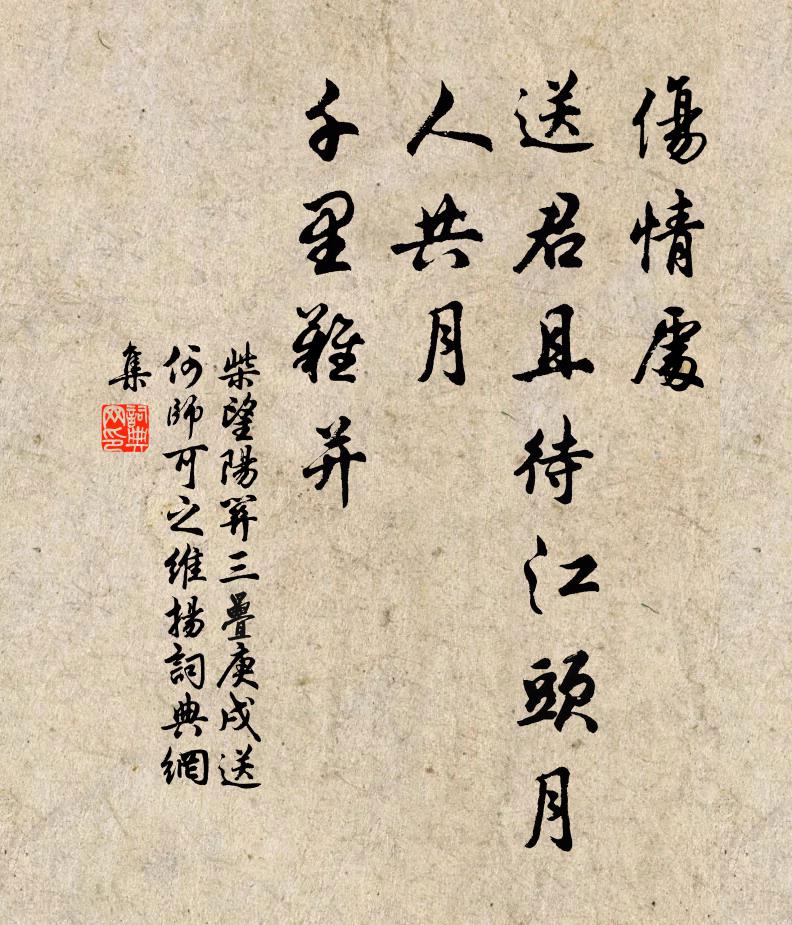 傷情處
送君且待江頭月
人共月
千里難并
柴望陽關三疊庚戌送
何師可之維揚詞典網
集
詞典網印